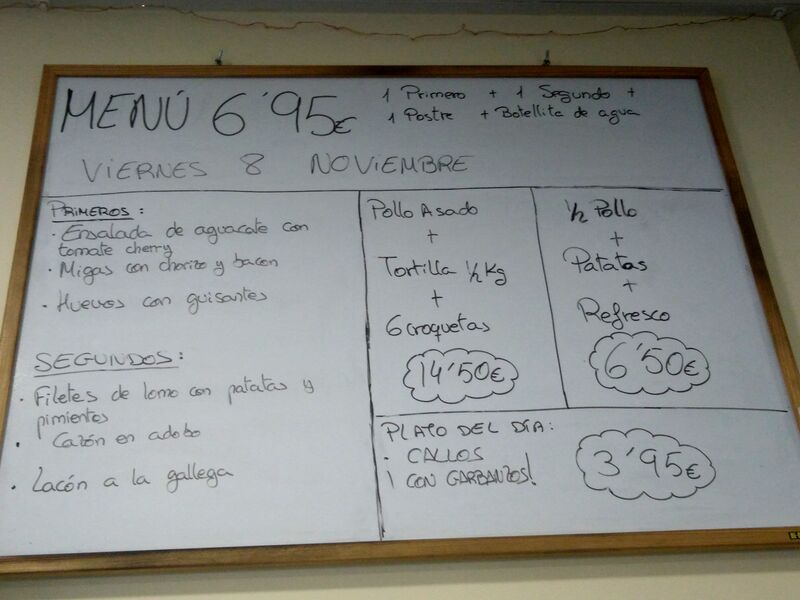 MENÚ 6'95€
1 Primero + 1 Segundo +
1 Postre + Botellita de agua
VIERNES 8 NOVIEMBRE
PRIMEROS:
· Ensalada de aguacate con
tomate cherry
· Migas con chorizo y bacon
· Huevos con guisantes
SEGUNDOS:
· Filetes de lomo con patatas y
pimientos
· Cazón en adobo
· Lacón a la gallega
Pollo Asado
+
Tortilla 1/2 Kg
+
6 croquetas
14'50€
1/2 Pollo
+
Patatas
+
Refresco
6'50€
PLATO DEL DÍA:
· CALLOS
¡CON GARBANZOS!
3'95€